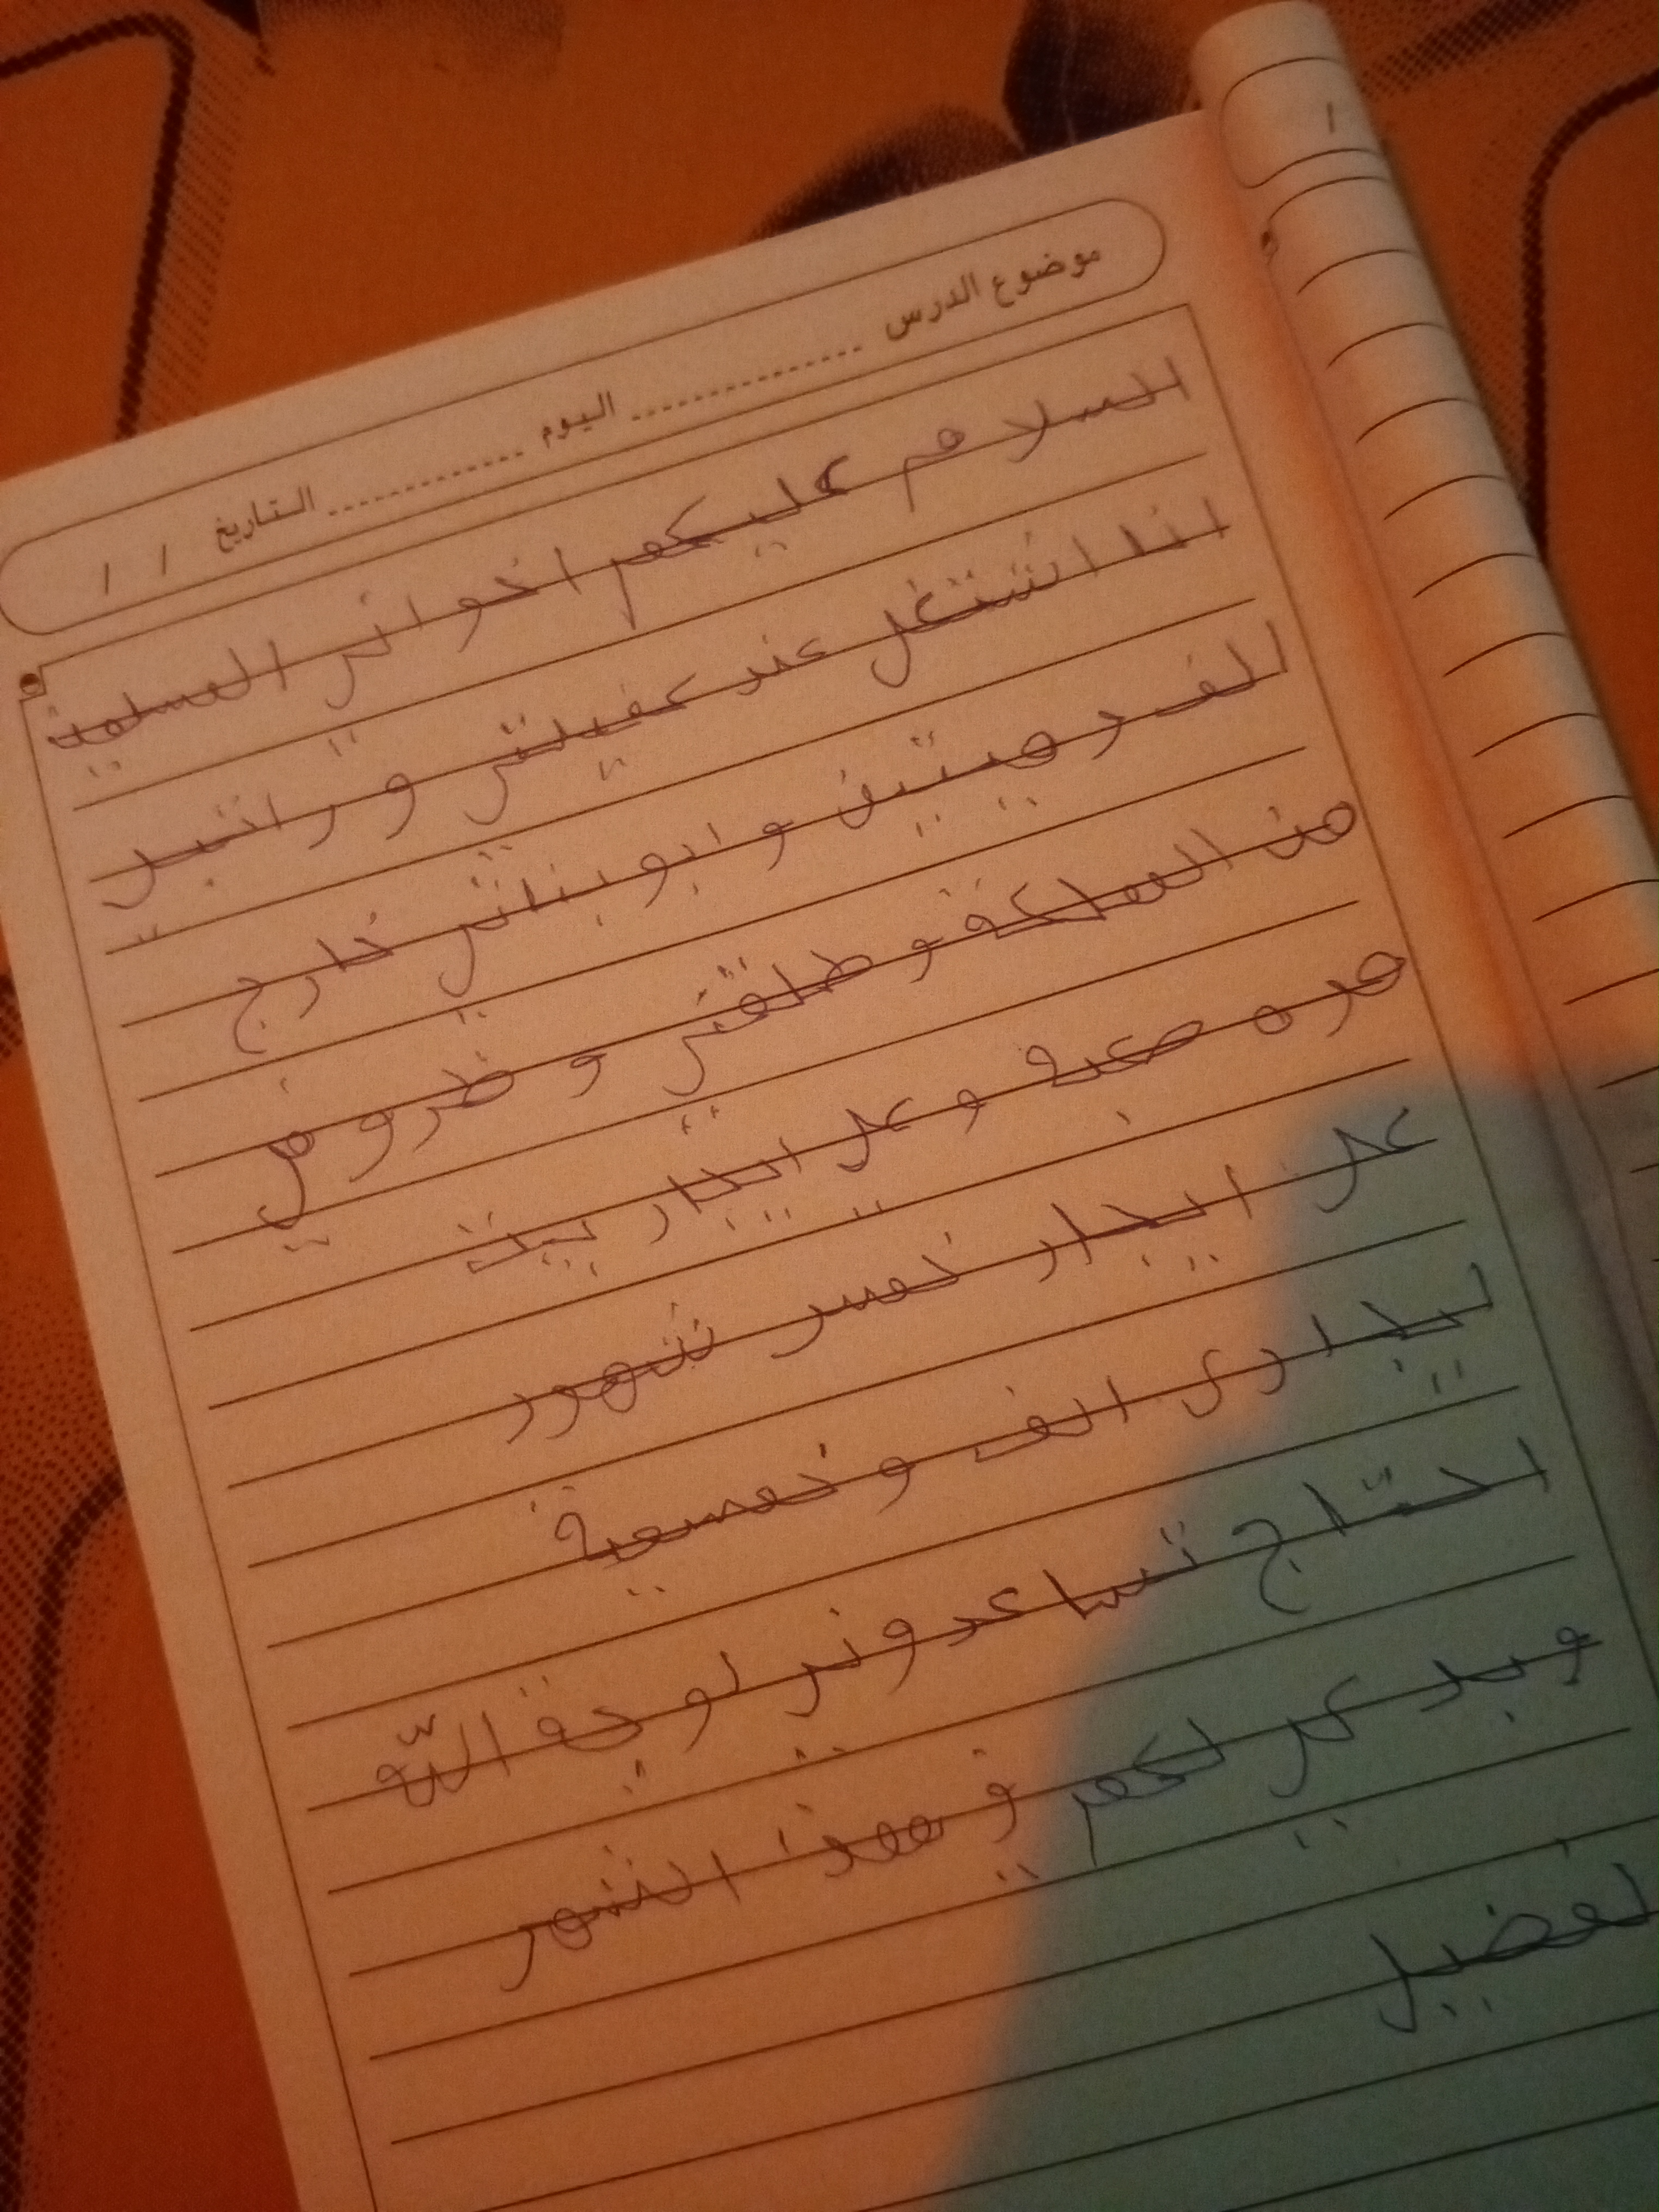 موضوع الدرس ................ اليوم ............ التاريخ / /
السلام عليكم اخواني المسلمين
انا اشتغل عند كفيلتي و راتبي
الف ومييتين وابو بناتي خارج
من المملكة وطلقني و ظروفي
مره صعبه و علي ايجار بيت
علي ايجار خمس شهور
ايجاري الف و خمسمية
احتاج تساعدوني لوجة اللّه
وبدعي لكم في هذا الشهر
لفضيل